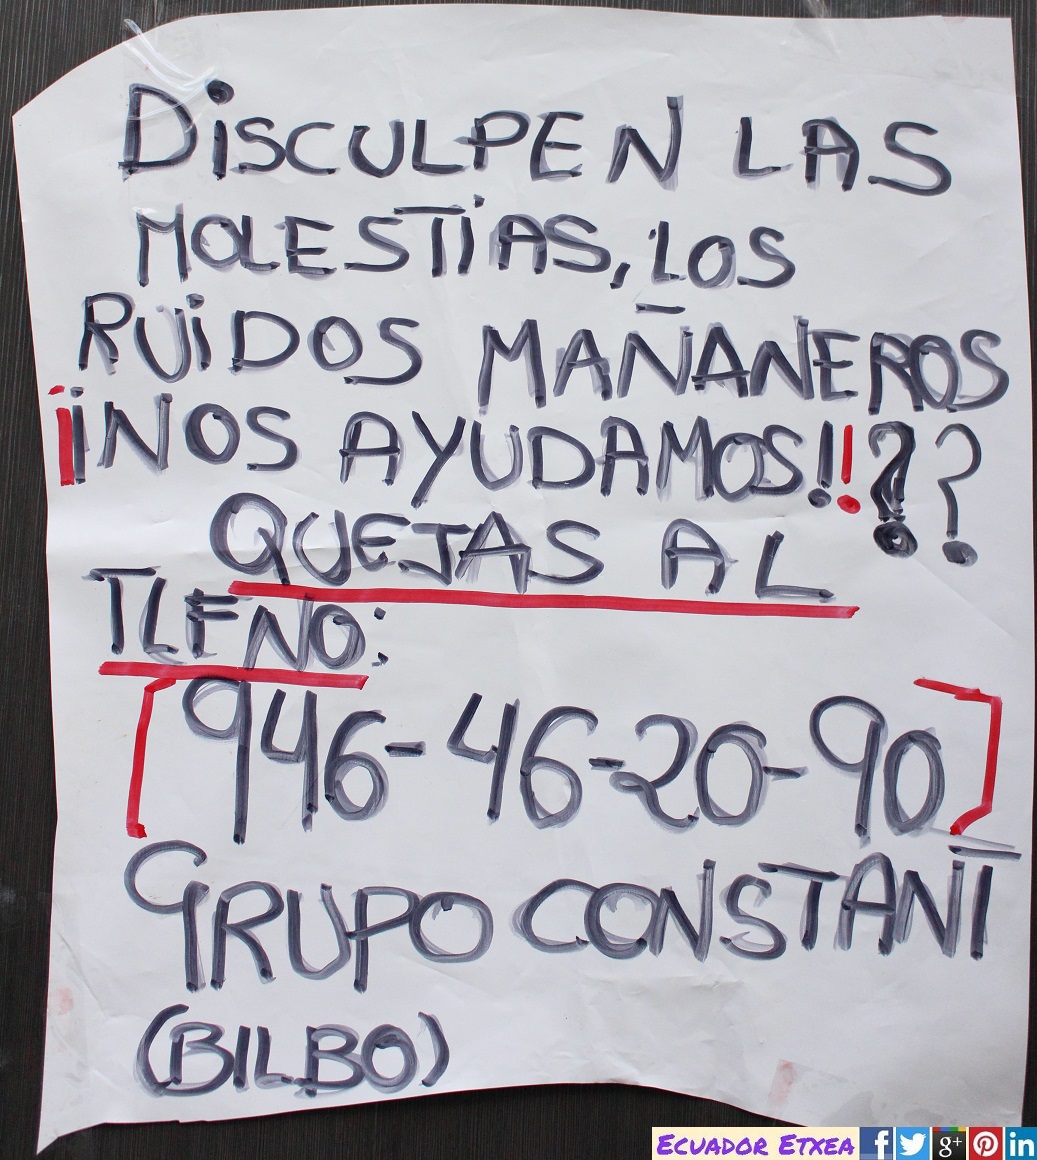 DiSCULPEN LAS
MOLESTiAS, LOS
RUiDOS MAÑANEROS
¡¡NOS AYUDAMOS!!??
QUEJAS AL
TLFNO:
[946-46-20-90]
GRUPO CONSTANT
(BILBO)
ECUADOR ETXEA